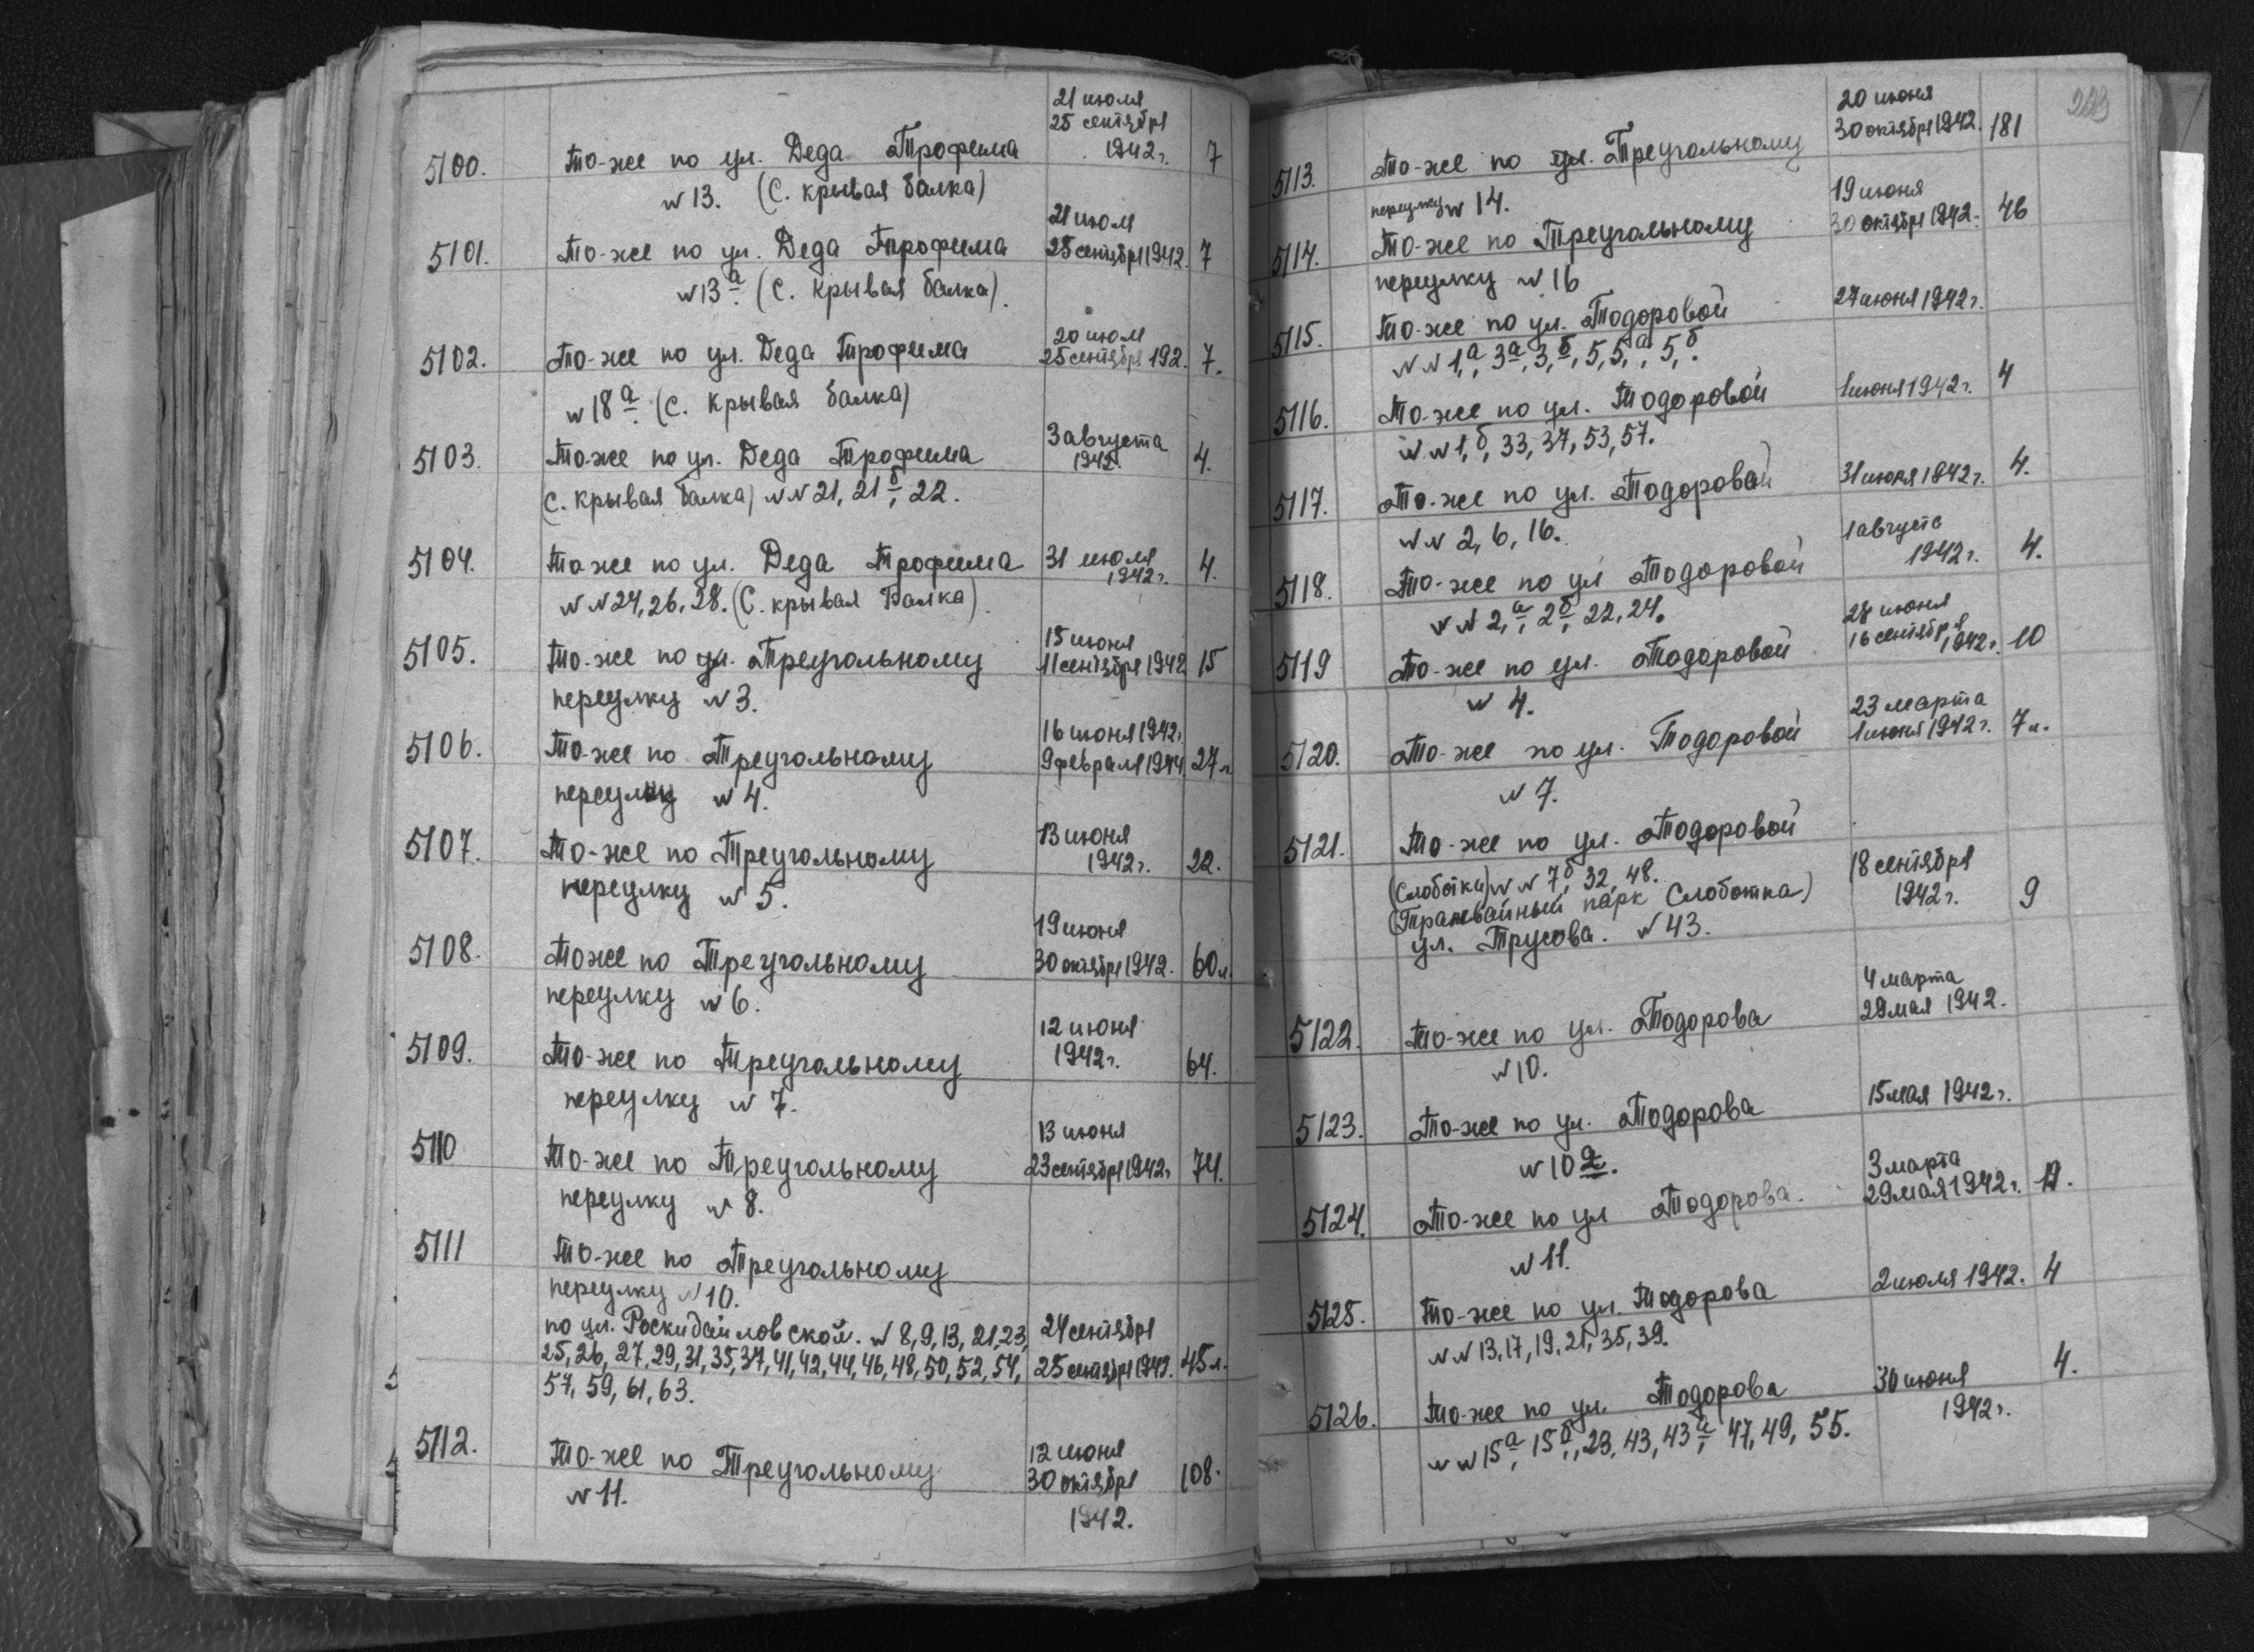 21 июля
25 сентября
5100. То-же по ул. Деда Трофима 1942 г. 7
№ 13. (С. крывая балка)
21 июля
5101. То-же по ул. Деда Трофима 25 сентября 1942. 7
№ 13 а. (С. Крывая балка).
20 июля
5102. То-же по ул. Деда Трофима 25 сентября 192. 7.
№ 18 а (С. Крывая балка)
3 августа
5103. То-же по ул. Деда Трофима 1942. 4.
С. крывая балка) №№ 21, 21 б, 22.
5104. То же по ул. Деда Трофима 31 июля 1942 г. 4.
№№ 24, 26, 28. (С. крывая Балка).
15 июня
5105. То-же по ул. Треугольному 11 сентября 1942 15
переулку № 3.
16 июня 1942 г.
5106. То-же по Треугольному 9 февраля 1944 27 л
переулку № 4.
13 июня
5107. То-же по Треугольному 1942 г. 22.
переулку № 5.
19 июня
5108. Тоже по Треугольному 30 октября 1942. 60 л.
переулку № 6.
12 июня
5109. То-же по Треугольному 1942 г. 64.
переулку № 7.
13 июня
5110 То-же по Треугольному 23 сентября 1942 г 74.
переулку № 8.
5111 То-же по Треугольному
переулку № 10.
по ул. Роскидайловской. № 8, 9, 13, 21, 23, 24 сентября
25, 26, 27, 29, 31, 35, 37, 41, 42, 44, 46, 48, 50, 52, 54, 25 сентября 1942. 45 л.
57, 59, 61, 63.
5112. То-же по Треугольному 12 июня
№ 11. 30 октября 108.
1942.
223
20 июня
5113. То-же по ул. Треугольному 30 октября 1942. 181
переулку № 14.
19 июня
5114. То-же по Треугольному 30 октября 1942. 46
переулку № 16
5115. То-же по ул. Тодоровой 27 июня 1942 г.
№№ 1, а, 3 а, 3, б, 5, 5, а, 5, б.
5116. То-же по ул. Тодоровой 1 июня 1942 г. 4
№№ 1, б, 33, 37, 53, 57.
5117. То-же по ул. Тодоровой 31 июля 1942 г. 4.
№№ 2, 6, 16.
1 августа
5118. То-же по ул Тодоровой 1942 г. 4.
№№ 2, а, 2 б, 22, 24.
28 июня
16 сентября
5119 То-же по ул. Тодоровой 1942 г. 10
№ 4.
23 марта
5120. То-же по ул. Тодоровой 1 июня 1942 г. 7 л.
№ 7.
5121. То-же по ул. Тодоровой
(Слоботка) №№ 7 б, 32, 48. 18 сентября
(Трамвайный парк Слоботка) 1942 г. 9
ул. Трусова. № 43.
4 марта
5122. То-же по ул. Тодорова 29 мая 1942.
№ 10.
5123. То-же по ул. Тодорова 15 мая 1942 г.
№ 10 а.
3 марта
5124. То-же по ул Тодорова. 29 мая 1942 г.
№ 11.
5125. То-же по ул. Тодорова 2 июля 1942. 4
№№ 13, 17, 19, 21, 35, 39.
5126. То-же по ул. Тодорова 30 июня 4.
№№ 15 а, 15 б, 23, 43, 43 а, 47, 49, 55. 1942 г.